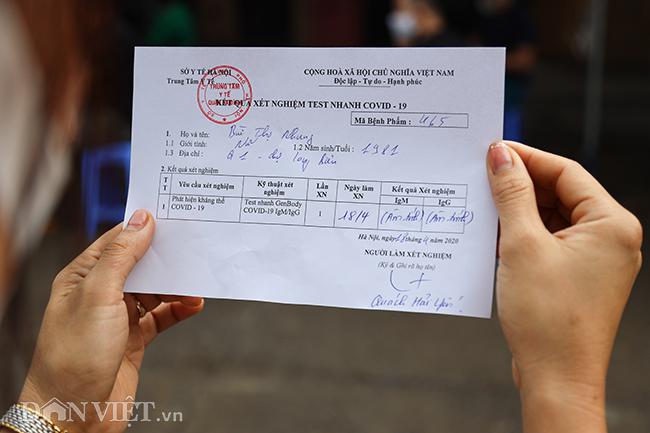 SỞ Y TẾ HÀ NỘI
Trung Tâm Y TẾ
CỘNG HOÀ XÃ HỘI CHỦ NGHĨA VIỆT NAM
Độc lập - Tự do - Hạnh phúc
TRUNG TÂM
Y TẾ
KẾT QUẢ XÉT NGHIỆM TEST NHANH COVID - 19
Mã Bệnh Phẩm : 465
1. Họ và tên: Bùi Thị Nhung
1.1 Giới tính: Nữ 1.2 Năm sinh/Tuổi : 1981
1.3 Địa chỉ:
2. Kết quả xét nghiệm
TT Yêu cầu xét nghiệm Kỹ thuật xét nghiệm Lần XN Ngày làm XN Kết quả Xét nghiệm
IgM IgG
1 Phát hiện kháng thể COVID - 19 Test nhanh GenBody COVID-19 IgM/IgG 1 18/4 (Âm tính) (Âm tính)
Hà Nội, ngày 18 tháng 4 năm 2020
NGƯỜI LÀM XÉT NGHIỆM
(Ký & Ghi rõ họ tên)
Quách Hải Yến
DÂN VIỆT.vn